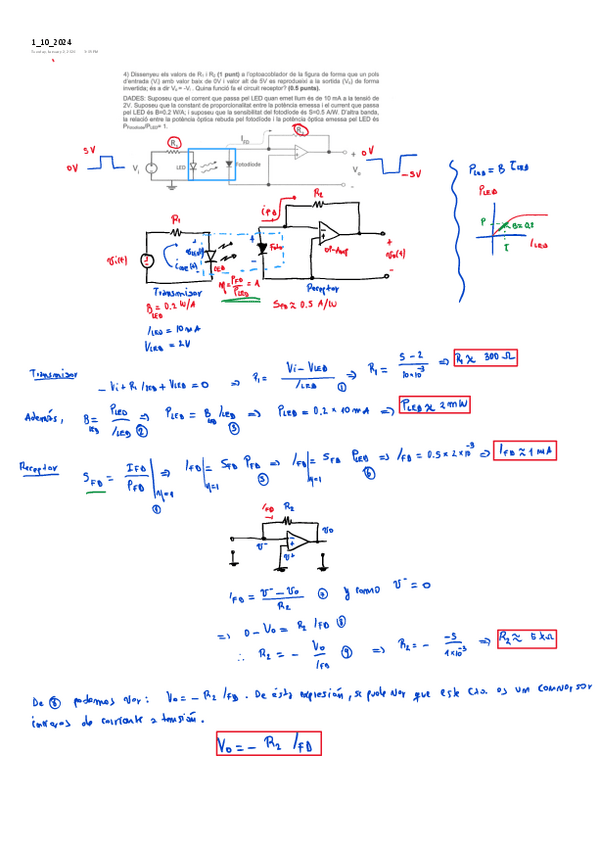 1_10_2024
4) Dissenyeu els valors de R₁ i R₂ (1 punt) a l'optoacoblador de la figura de forma que un pols
d'entrada (Vᵢ) amb valor baix de 0V i valor alt de 5V es reprodueixi a la sortida (V₀) de forma
invertida; és a dir V₀ = -Vᵢ. Quina funció fa el circuit receptor? (0.5 punts).
DADES: Suposeu que el corrent que passa pel LED quan emet llum és de 10 mA a la tensió de
2V. Suposeu que la constant de proporcionalitat entre la potència emessa i el corrent que passa
pel LED és B=0.2 W/A; i suposeu que la sensibilitat del fotodíode és S=0.5 A/W. D'altra banda,
la relació entre la potència òptica rebuda pel fotodíode i la potència òptica emessa pel LED és
P_Fotodíode/P_LED= 1.
5V
0V
Vᵢ
R₁
LED
Fotodíode
R₂
+
V₀
-
0V
-5V
P_LED = B I_LED
P_LED
P
B=0.2
I
I_LED
R₁
vi(t)
LED
i_FD
R₂
Op-Amp
+
v₀(t)
-
Transmisor
η = P_FD/P_LED = 1
Receptor
B_LED = 0.2 W/A
S_FD ≈ 0.5 A/W
I_LED = 10 mA
V_LED = 2V
Transmisor
- Vi + R₁ I_LED + V_LED = 0 ⇒ R₁ = (Vi - V_LED)/I_LED ① ⇒ R₁ = (5 - 2)/(10×10⁻³) ⇒ R₁ ≈ 300 Ω
Además, B_LED = P_LED/I_LED ② ⇒ P_LED = B_LED I_LED ③ ⇒ P_LED = 0.2 × 10 mA ⇒ P_LED ≈ 2 mW
Receptor S_FD = I_FD/P_FD |η=1 ④ ⇒ I_FD|η=1 = S_FD P_FD ⑤ ⇒ I_FD|η=1 = S_FD P_LED ⑥ ⇒ I_FD = 0.5 × 2×10⁻³ ⇒ I_FD ≈ 1 mA
I_FD R₂
V⁻ V₀
V⁺
I_FD = (V⁻ - V₀)/R₂ ⑦ y como V⁻ = 0
⇒ 0 - V₀ = R₂ I_FD ⑧
∴ R₂ = - V₀/I_FD ⑨ ⇒ R₂ = - (-5)/(1×10⁻³) ⇒ R₂ ≈ 5 kΩ
De ⑧ podemos ver: V₀ = - R₂ I_FD. De ésta expresión, se puede ver que este cto. es un conversor
inversor de corriente a tensión.
V₀ = - R₂ I_FD